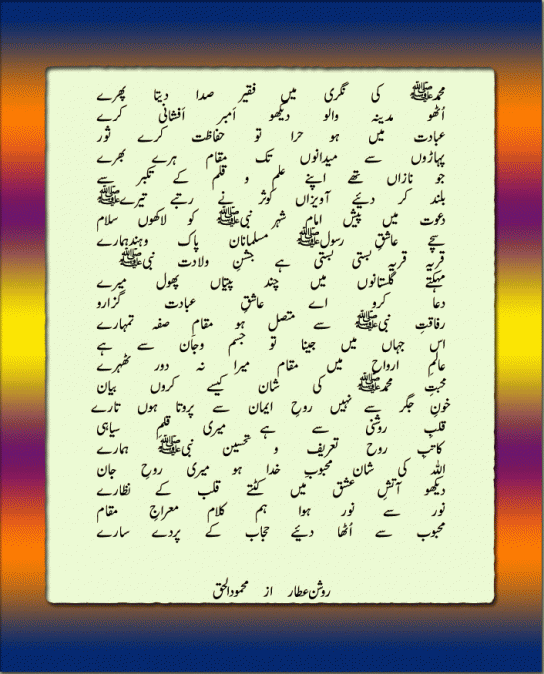 محمدﷺ کی نگری میں فقیر صدا دیتا پھرے
اُٹھو مدینہ والو دیکھو اَمبر اَفشانی کرے
عبادت میں ہو حرا تو حفاظت کرے ثور
پہاڑوں سے میدانوں تک مقام ہرے بھرے
جو نازاں تھے اپنے علم و قلم کے تکبر سے
بلند کر دیئے آویزاں کوثر نے رتبے تیرےﷺ
دعوت میں پیش امام شہر نبیﷺ کو لاکھوں سلام
سچے عاشقِ رسولﷺ مسلمانان پاک وہندہمارے
قریہ قریہ بستی بستی ہے جشنِ ولادت نبیﷺ
مہکتے گلستانوں میں چند پتیاں پھول میرے
دعا کرو اے عاشقِ عبادت گزارو
رفاقتِ نبیﷺ سے متصل ہو مقامِ صفہ تمہارے
اس جہاں میں جینا تو جسم وجان سے ہے
عالمِ ارواح میں مقام میرا نہ دور ٹھہرے
محبتِ محمدﷺ کی شان کیسے کروں بیان
خونِ جگر سے نہیں روحِ ایمان سے پروتا ہوں تارے
قلبِ روشنی سے ہے میری قلمِ سیاہی
کاتبِ روح تعریف و تحسین نبیﷺ ہمارے
اللہ کی شان محبوبِ خدا ہو میری روحِ جان
دیکھو آتشِ عشق میں کٹتے قلب کے نظارے
نور سے نور ہوا ہم کلام معراجِ مقام
محبوب سے اُٹھا دیئے حجاب کے پردے سارے
روشن عطار از محمودالحق